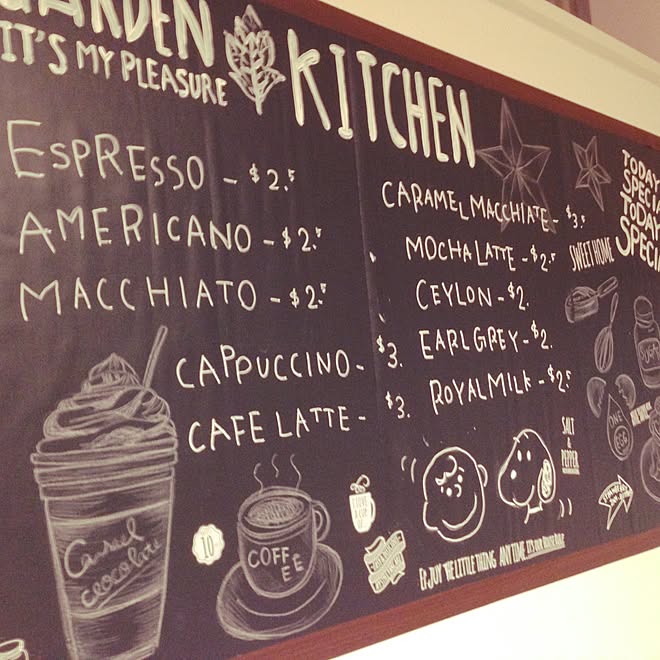 GARDEN
IT'S MY PLEASURE
KITCHEN
ESPRESSO - $2.5
AMERICANO - $2.5
MACCHIATO - $2.5
CAPPUCCINO - $3.
CAFE LATTE - $3.
CARAMEL MACCHIATE - $3.5
MOCHA LATTE - $2.5
CEYLON - $2.
EARL GREY - $2.
ROYAL MILK - $2.5
TODAY
SPECIA
TODAY
SPECI
SWEET HOME
SUGAR
ONE
EGG
SALT
&
PEPPER
Caramel
cocolate
10
COFF
EE
ENJOY THE LITTLE THING ANYTIME